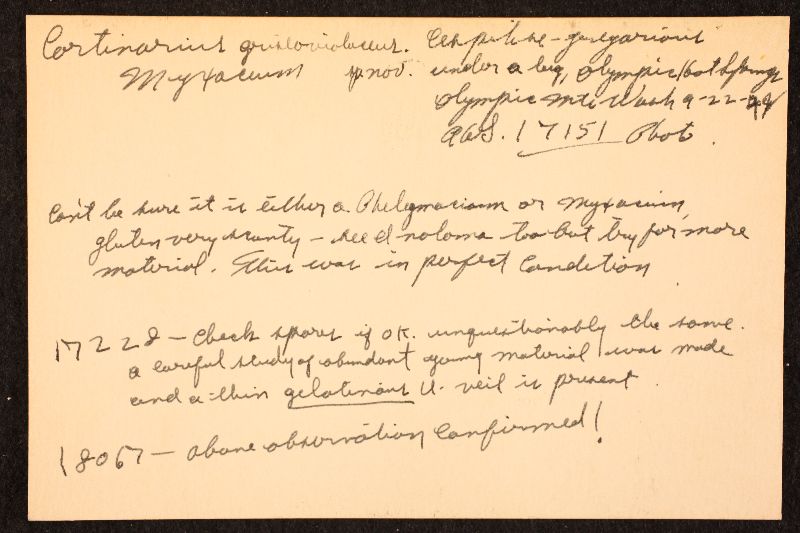 Cortinarius griseoviolaceus.
Myxacium sp nov.
Cespitose-gregarious
under a log, Olympic Hot Springs
Olympic Mts Wash 9-22-41
AHS. 17151 Phot.
Can't be sure it is either a Phlegmacium or Myxacium,
gluten very scanty – see Inoloma too but try for more
material. This was in perfect Condition
17228 – Check spores if OK. unquestionably the same.
a careful study of abundant young material was made
and a thin gelatinous U. veil is present.
18067 – above observation Confirmed!